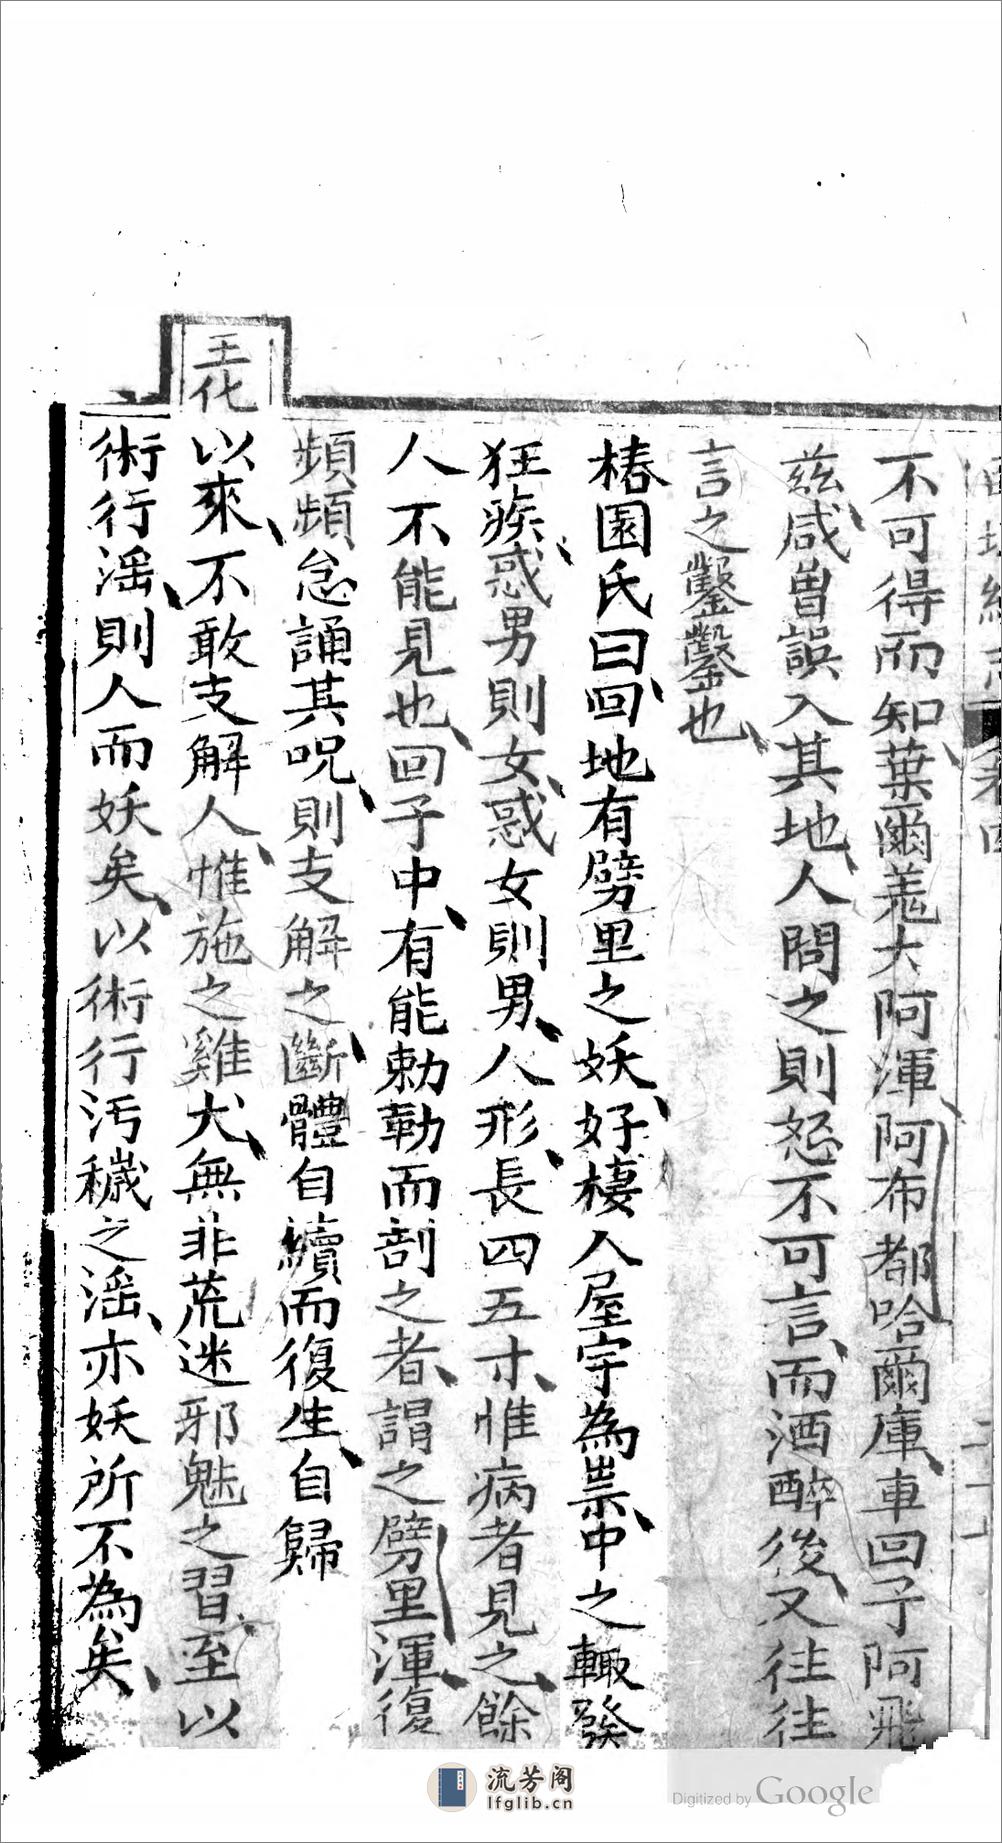 不可得而知葉爾羗大阿渾阿布都哈爾庫車回子阿飛
茲咸曽誤入其地人問之則怒不可言而酒醉後又往往
言之鑿鑿也
椿園氏曰回地有劈里之妖好棲人屋宇為祟中之輙發
狂疾惑男則女惑女則男人形長四五寸惟病者見之餘
人不能見也回子中有能勅勒而剖之者謂之劈里渾復
頻頻怠誦其呪則支解之斷體自續而復生自歸
王化
以來不敢支解人惟施之雞犬無非荒迷邪魅之習至以
術行滛則人而妖矣以術行汚穢之滛亦妖所不為矣
流芳阁
lfglib.cn
Digitized by Google